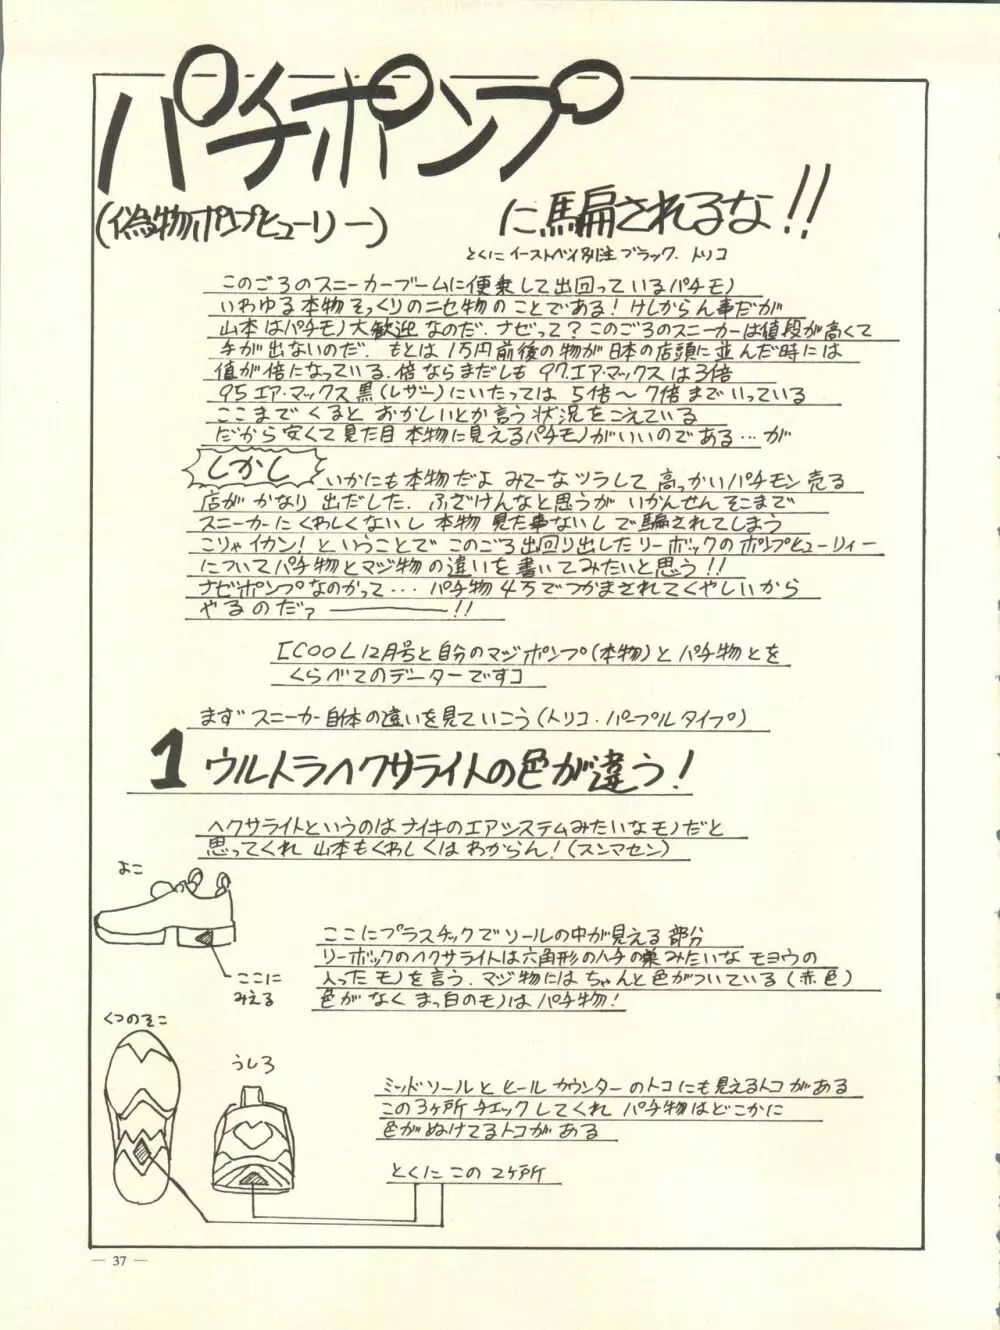 パチポンプ
(偽物ポンプヒューリー)
に騙されるな!!
とくに イーストベイ別注 ブラック. トリコ
このごろのスニーカーブームに便乗して出回っているパチモノ
いわゆる本物そっくりのニセ物のことである!けしからん事だが
山本はパチモノ大歓迎なのだ.ナゼって?このごろのスニーカーは値段が高くて
手が出ないのだ.もとは1万円前後の物が日本の店頭に並んだ時には
値が倍になっている.倍ならまだしも 97エア・マックスは3倍
95エア・マックス黒(レザー)にいたっては 5倍〜7倍までいっている
ここまでくると おかしいとか言う状況をこえている
だから安くて見た目本物に見えるパチモノがいいのである…が
しかし
いかにも本物だよ みてーなツラして 高っかいパチモン売る
店が かなり 出だした.ふざけんなと思うが いかんせん そこまで
スニーカーにくわしくないし 本物 見た事ないし で騙されてしまう
こりゃイカン!ということで このごろ出回り出したリーボックのポンプヒューリィー
についてパチ物とマジ物の違いを書いてみたいと思う!!
ナゼポンプなのかって… パチ物4万でつかまされてくやしいから
やるのだァ――――!!
「COOL12月号と自分のマジポンプ(本物)とパチ物とを
くらべてのデーターですコ
まず スニーカー自体の違いを見ていこう(トリコ・パープルタイプ)
1 ウルトラヘクサライトの色が違う!
ヘクサライトというのはナイキのエアシステムみたいなモノだと
思ってくれ 山本もくわしくはわからん!(スンマセン)
よこ
ここに
みえる
ここにプラスチックでソールの中が見える部分
リーボックのヘクサライトは六角形のハチの巣みたいなモヨウの
入ったモノを言う.マジ物にはちゃんと色がついている(赤色)
色がなくまっ白のモノはパチ物!
くつのそこ
うしろ
ミッドソールとヒールカウンターのトコにも見えるトコがある
この3ヶ所チエックしてくれ パチ物はどこかに
色がぬけてるトコがある
とくにこの2ヶ所
— 37 —